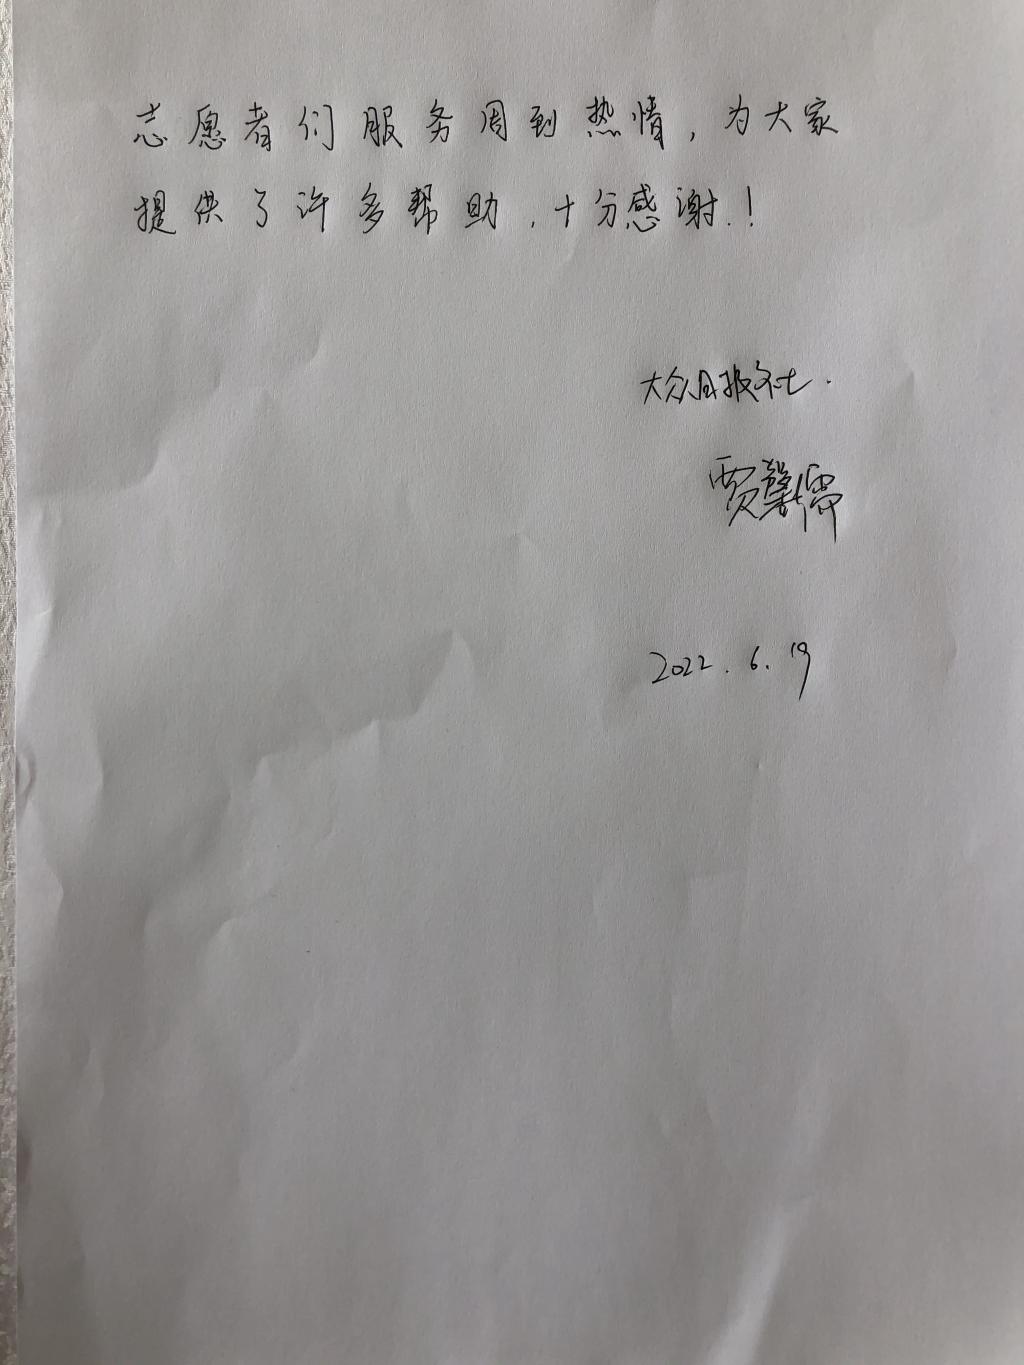 志愿者们服务周到热情，为大家
提供了许多帮助，十分感谢！
大众日报社.
贾
2022.6.19